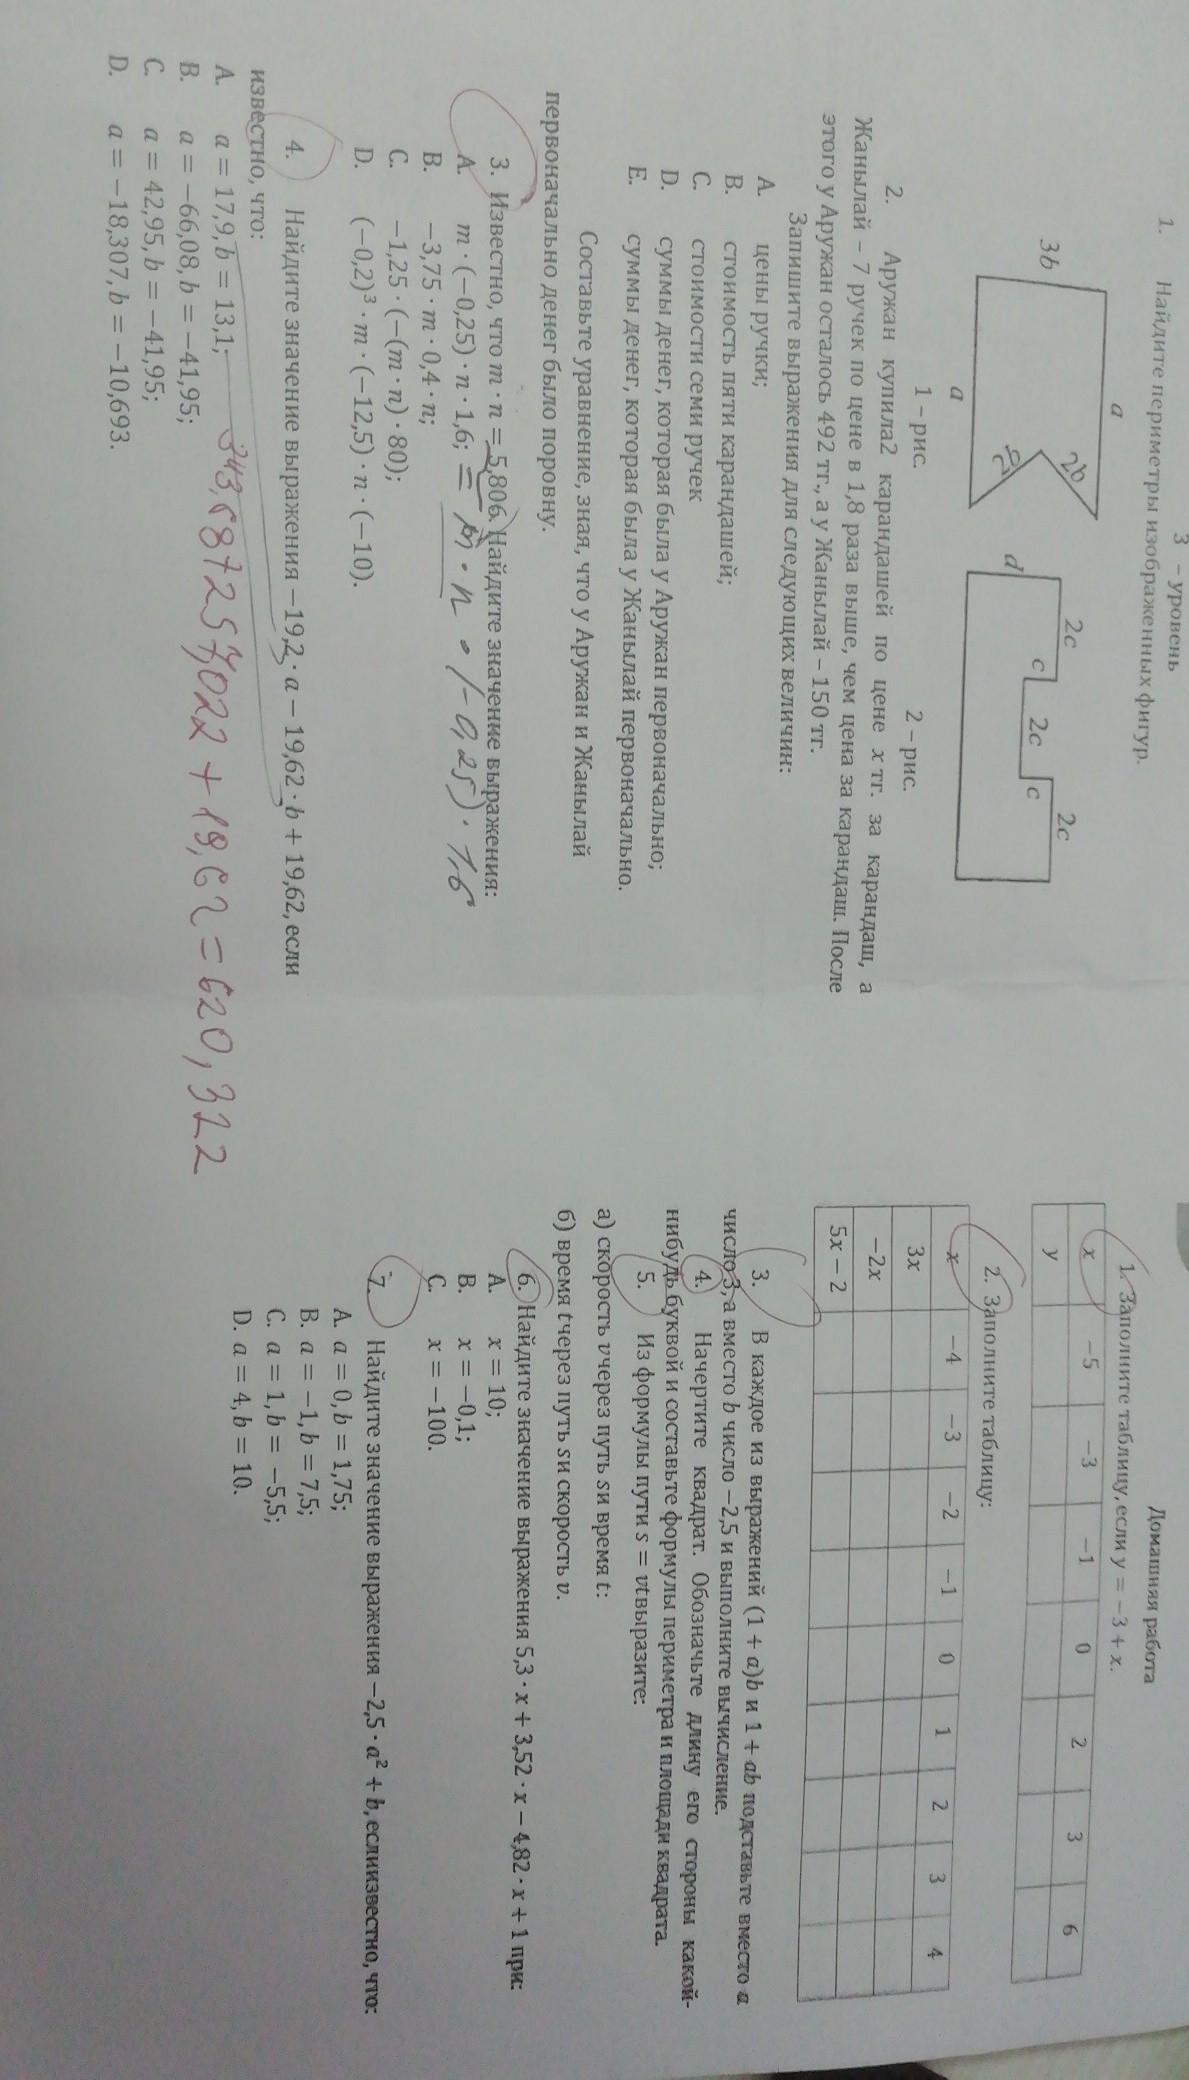 3 – уровень
1. Найдите периметры изображенных фигур.
a
3b
2b
a
2c
2c
2c
c
c
d
1 – рис.
2 – рис.
2. Аружан купила2 карандашей по цене x тг. за карандаш, а
Жанылай – 7 ручек по цене в 1,8 раза выше, чем цена за карандаш. После
этого у Аружан осталось 492 тг., а у Жанылай – 150 тг.
Запишите выражения для следующих величин:
A. цены ручки;
B. стоимость пяти карандашей;
C. стоимости семи ручек
D. суммы денег, которая была у Аружан первоначально;
E. суммы денег, которая была у Жанылай первоначально.
Составьте уравнение, зная, что у Аружан и Жанылай
первоначально денег было поровну.
3. Известно, что m · n = 5,806. Найдите значение выражения:
A. m · (−0,25) · n · 1,6; = m · n · (−0,25) · 1,6
B. −3,75 · m · 0,4 · n;
C. −1,25 · (−(m · n) · 80);
D. (−0,2)³ · m · (−12,5) · n · (−10).
4. Найдите значение выражения −19,2 · a − 19,62 · b + 19,62, если
известно, что:
A. a = 17,9, b = 13,1;
B. a = −66,08, b = −41,95;
C. a = 42,95, b = −41,95;
D. a = −18,307, b = −10,693.
+ 19,62 = 620,322
Домашняя работа
1. Заполните таблицу, если y = −3 + x.
x −5 −3 −1 0 2 3 6
y
2. Заполните таблицу:
x −4 −3 −2 −1 0 1 2 3 4
3x
−2x
5x − 2
3. В каждое из выражений (1 + a)b и 1 + ab подставьте вместо a
число 3, а вместо b число −2,5 и выполните вычисление.
4. Начертите квадрат. Обозначьте длину его стороны какой-
нибудь буквой и составьте формулы периметра и площади квадрата.
5. Из формулы пути s = vtвыразите:
а) скорость vчерез путь sи время t:
б) время tчерез путь sи скорость v.
6. Найдите значение выражения 5,3 · x + 3,52 · x − 4,82 · x + 1 при:
A. x = 10;
B. x = −0,1;
C. x = −100.
7. Найдите значение выражения −2,5 · a² + b, еслиизвестно, что:
A. a = 0, b = 1,75;
B. a = −1, b = 7,5;
C. a = 1, b = −5,5;
D. a = 4, b = 10.